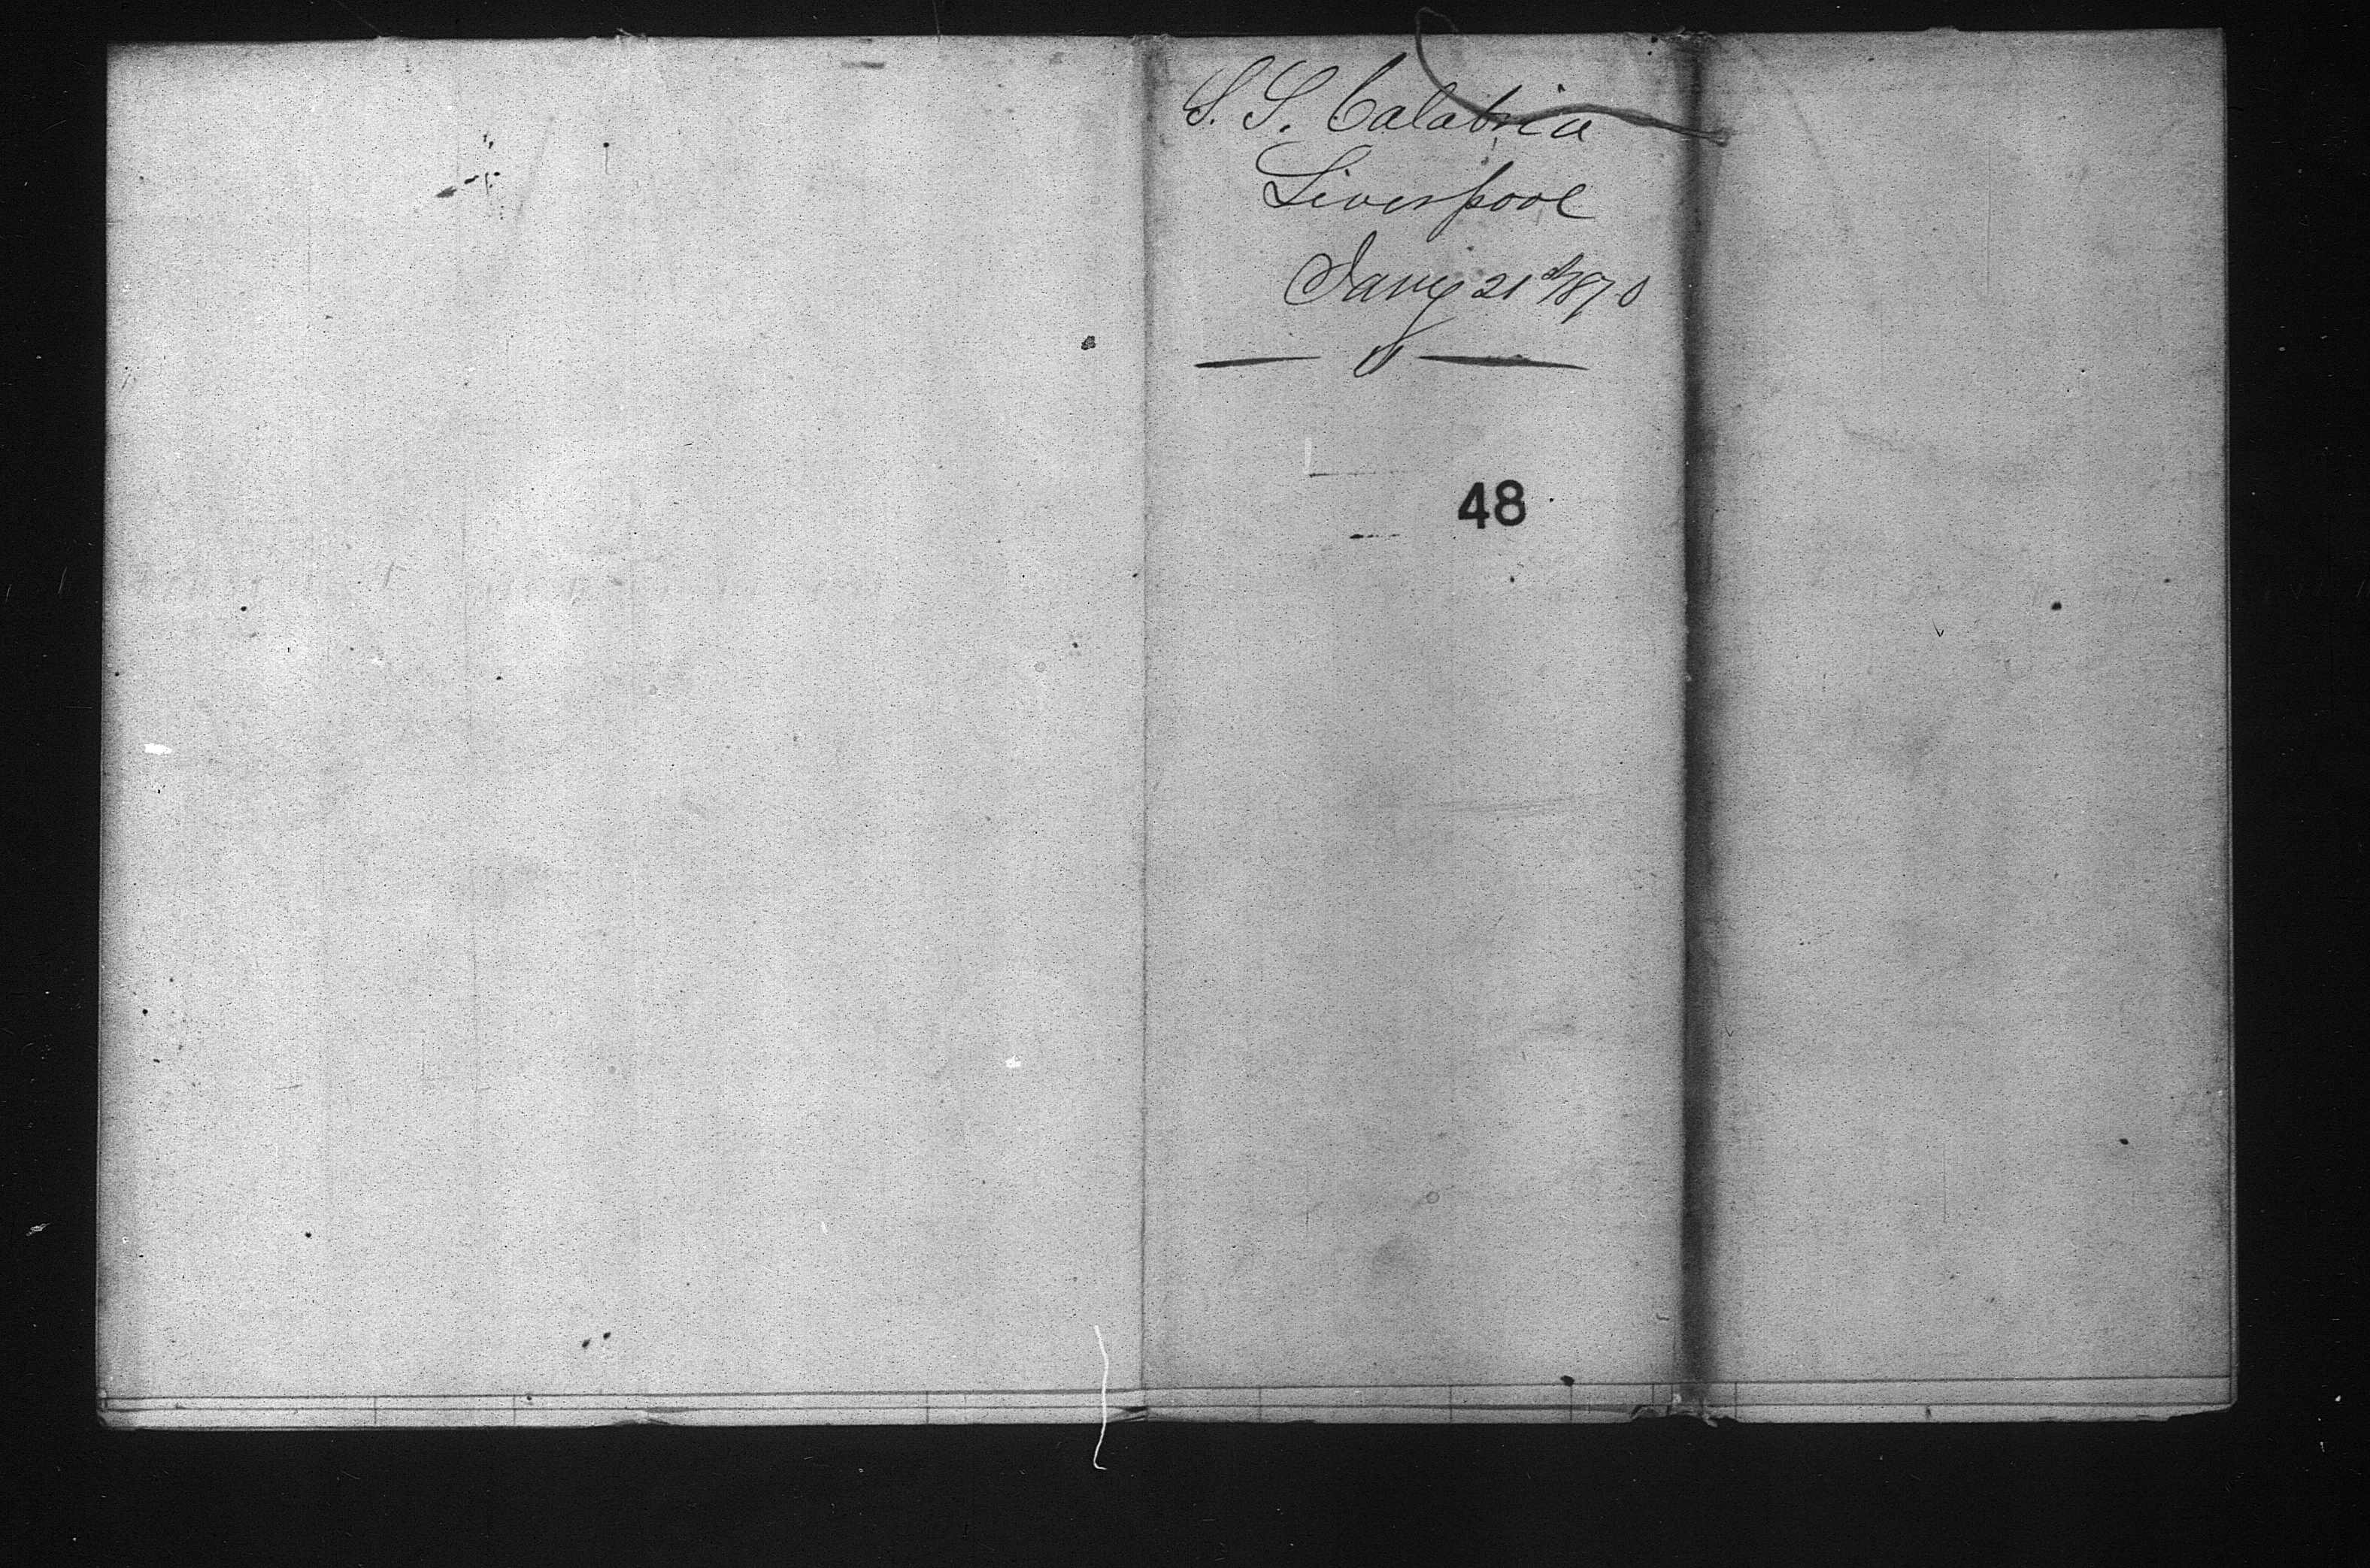 S. S. Calabria
Liverpool
Jany 21st 1870
48